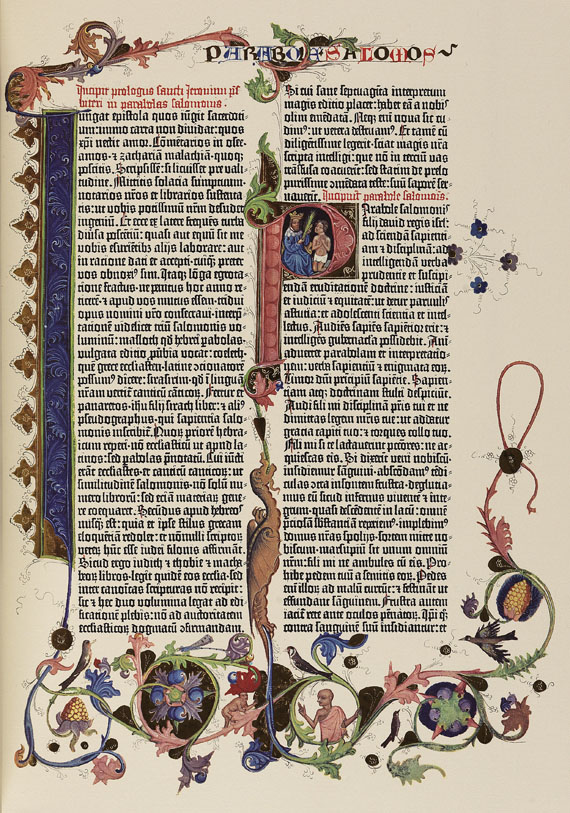 PARABOLE SALOMOIS
Incipit prologus sancti Jeronimi p̄s
biteri in parabolas salomonis.
Iungat epistola quos iūgit sacerdoti-
um: immo carta non dividat: quos
xp̄i nectit amor. Cōmētarios in osee-
amos· ⁊ zachariā malachiā· quoq;
poscitis. Scripsissē: si licuisset pre vali-
tudine. Mittitis solacia sumptuum·
notarios nr̄os et librarios sustenta-
tis: ut vobis potissimū nr̄m desudet
ingeniū. Et ecce ex latere freq̄ns turba
diūsa poscentiū: quasi aut equū sit me
vobis esuriētib; alijs laborare: aut
in ratione dati et accepti· cuiq̄ preter
vos obnoxi⁹ sim. Itaq; lōga egrota-
tione fractus· ne penitus hoc anno re-
ticerē· ⁊ apud vos mutus essem· tridui
opus nomini vr̄o consecravi· interp̄-
tationē videlicet triū salomonis vo-
luminū: masloth q̄d hebrei pabolas·
vulgata editio ꝓv̄bia vocat: coeleth·
quē grece ecclesiastē· latine ɔcionatorē
possum⁹ dicere: sirasirim· qd̄ ī linguā
nr̄am vertit̄ canticū cāticoꝝ. Fertur et
panaretos· ihū filij sirach liber: ⁊ ali⁹
pseudographus· qui sapientia salo-
monis inscribit̄. Quoꝝ priorē hebra-
icum repperi· nō ecclesiasticū ut apud la-
tinos: sed pabolas p̄notatū. Cui iūcti
erāt ecclesiastes· et canticū canticoꝝ: ut
similitudinē salomonis· nō solū nu-
mero libroꝝ: sed etiā materiaꝝ gene-
re coequaret. Secūdus apud hebreos
nusq̄ est: quia et ipse stilus grecam
eloquētiā redolet: et nōnulli scriptoꝝ
veterū hūc esse iudei filonis affirmāt.
Sicud ergo iudith ⁊ thobie ⁊ macha-
beoꝝ libros· legit quidē eos ecclesia· sed
inter canonicas scripturas nō recipit:
sic ⁊ hec duo volumina legat ad edi-
ficationē plebis: nō ad auctoritatem
ecclesiasticoꝝ dogmatū ɔfirmandam.
Si cui sane septuaginta interpretum
magis editio placet: habet eā a nobis
olim emēdatā. Neq; em̄ nova sic cu-
dim⁹: ut vetera destruam⁹. Et tamē cū
diligētissime legerit· sciat magis nr̄a
scripta intelligi: que nō in terciū vas
trāsfusa coacuerīt: sed statim de prelo
purissime ɔmēdata teste: suū saporē ser-
vaverīt.
Incipiūt parabole salomonis.
Parabole salomonis
filij david regis isrl̄:
ad sciendā sapienti-
am ⁊ disciplinā: ad
intelligendā verba
prudentie et suscipi-
endā eruditationē doctrine: iusticiā
et iudiciū ⁊ equitatē: ut detur parvulis
astutia: et adolescenti scientia et intel-
lectus. Audiēs sapiēs sapiētior erit: ⁊
intelligēs gubernacula possidebit. Ani-
advertet parabolam et interpretatio-
nem: verba sapientiū ⁊ enigmata eoꝝ.
Timor dn̄i principiū sapiētie. Sapien-
tiam atq; doctrinam stulti despiciūt.
Audi fili mi disciplinā pr̄is tui et ne
dimittas legem mr̄is tue: ut addatur
gratia capiti tuo: ⁊ torques collo tuo.
Fili mi si te lactaverint pctōres: ne ac-
quiescas eis. Si dixerīt veni nobiscū·
insidiemur sanguini· abscōdam⁹ tēdi-
culas ɔtra insontem frustra· deglutia-
mus eū sicud infernus viventē ⁊ inte-
grum· quasi descēdentē in lacū: omnē
p̄ciosā sb̄stantiā reperiem⁹· implebim⁹
domus nr̄as spolijs· sortem mitte no-
biscum· marsupiū sit unum omnium
nr̄m: fili mi ne ambules cū eis. Pro-
hibe pedem tuū a semitis eoꝝ. Pedes
em̄ illoꝝ ad malū currūt: ⁊ festināt ut
effundant sanguinem. Frustra autem
iacit̄ rete ante oculos pēnatoꝝ. Ipi q̄q;
contra sanguinē suū insidiantur: et